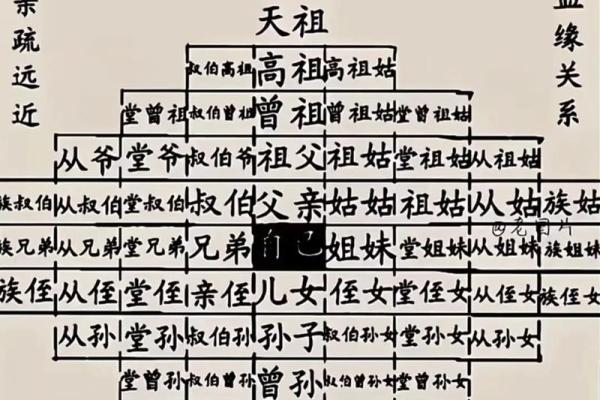 亲疏远近
血缘关系
天祖
叔伯高祖 高祖 高祖姑
堂曾祖 叔伯曾祖 曾祖 曾祖姑 堂曾祖姑
从爷 堂爷 叔伯爷 祖父 祖姑 堂祖姑 从祖姑
族叔伯 从叔伯 堂叔伯 叔伯 父亲 姑姑 祖姑 从姑 族姑
族兄弟 从兄弟 堂兄弟 兄弟 自己 姐妹 堂姐妹 从姐妹 族姐妹
族侄 从侄 堂侄 亲侄 儿女 侄女 堂侄女 从侄女 族侄女
从孙 堂孙 叔伯孙 孙子 叔伯孙女 堂孙女 从孙女
堂曾孙 叔伯曾孙 曾孙 叔伯曾孙女 堂曾孙女